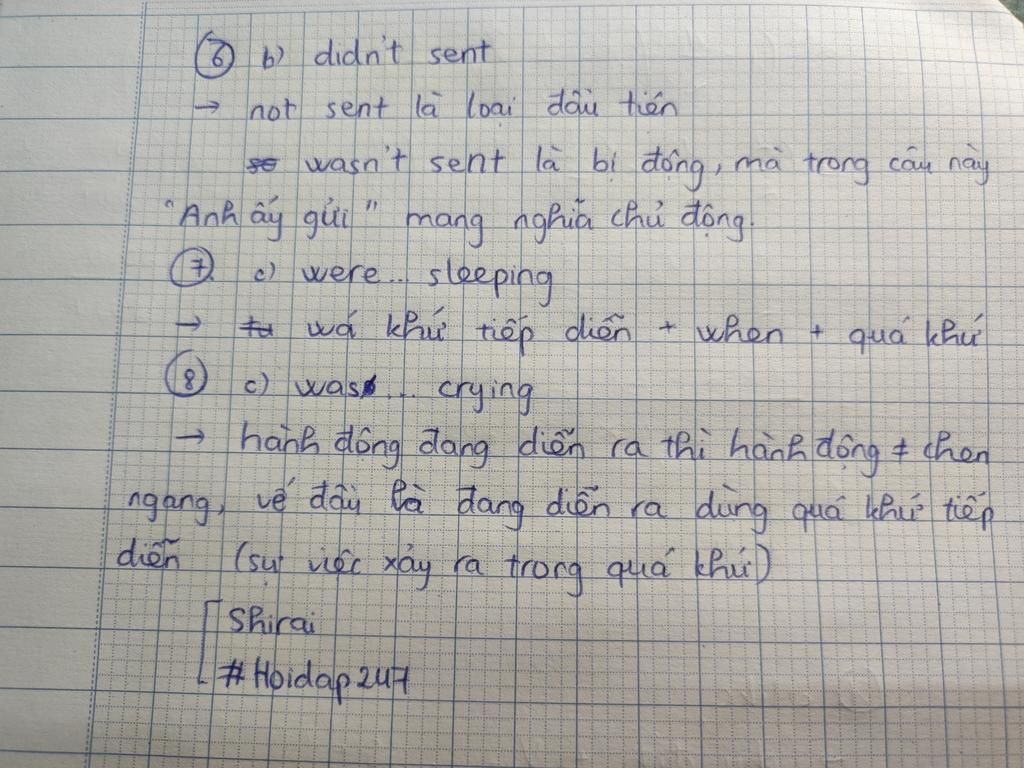 ⑥ b) didn't sent
→ not sent là loại đầu tiên
wasn't sent là bị động, mà trong câu này
"Anh ấy gửi" mang nghĩa chủ động.
⑦ c) were... sleeping
→ wá khứ tiếp diễn + when + quá khứ
⑧ c) was... crying
→ hành động đang diễn ra thì hành động ≠ chen
ngang, vế đầu là đang diễn ra dùng quá khứ tiếp
diễn (sự việc xảy ra trong quá khứ)
Shirai
#Hoidap247